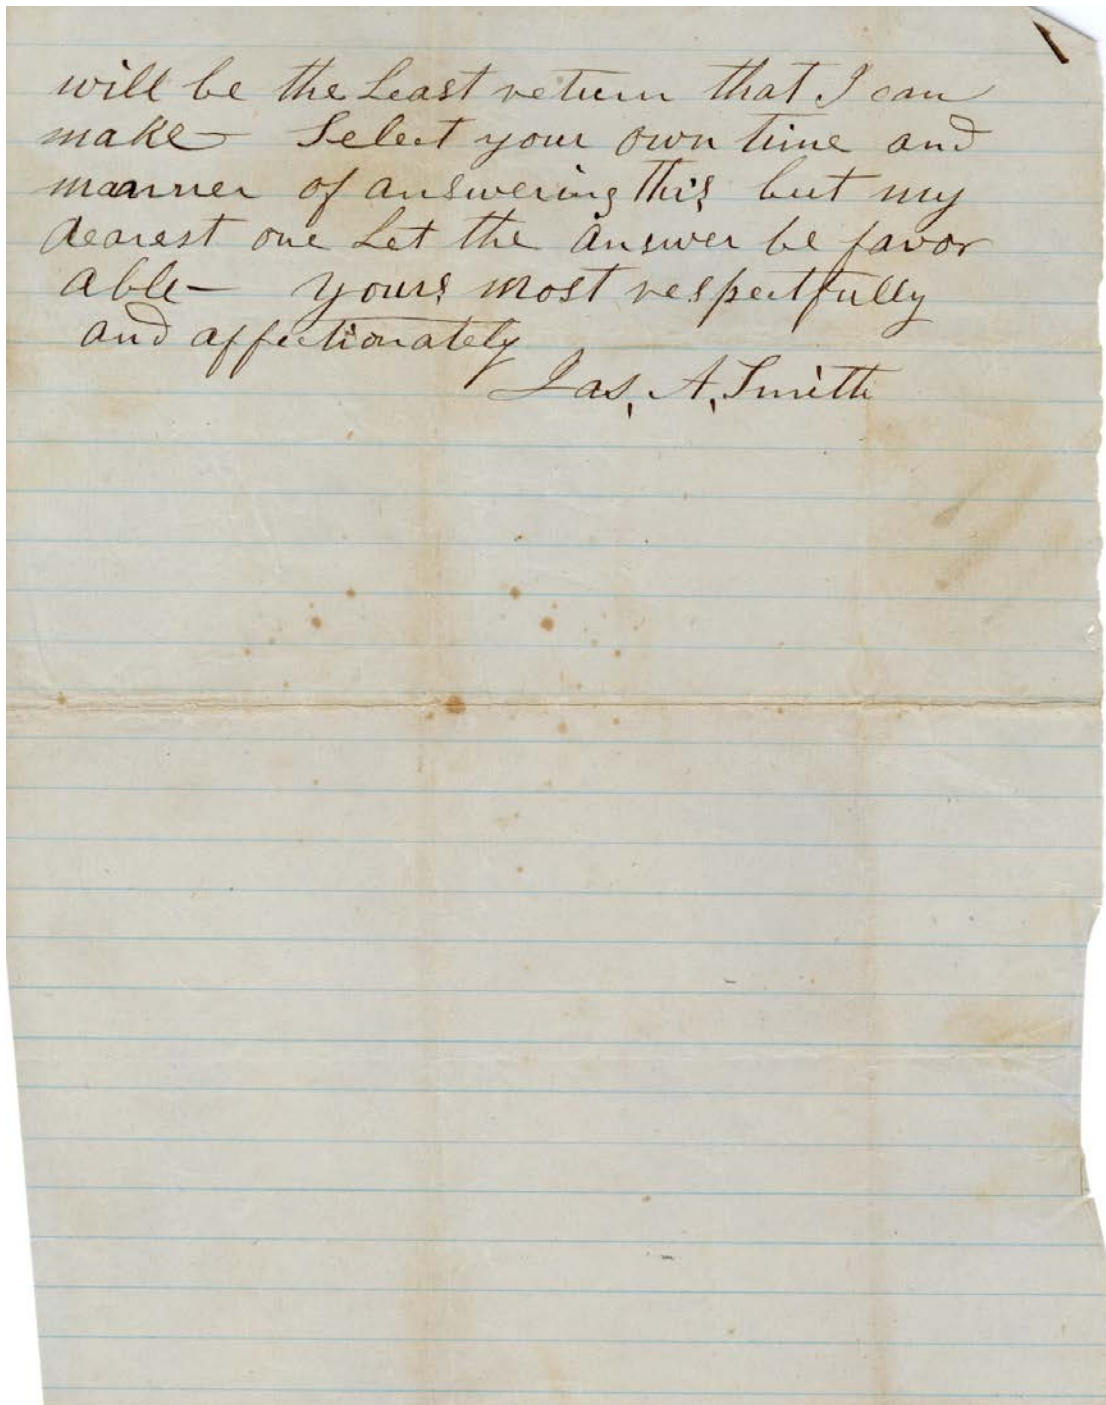 will be the Least return that I can
make – Select your own time and
manner of answering this but my
dearest one Let the answer be favor
able – yours most respectfully
and affectionately
Jas, A, Smith